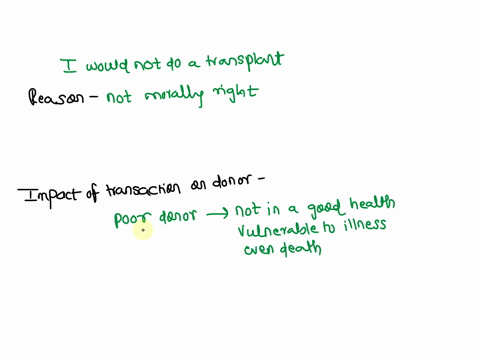 I would not do a transplant
Reason - not morally right
Impact of transaction on donor -
poor donor → not in a good health
vulnerable to illness
even death